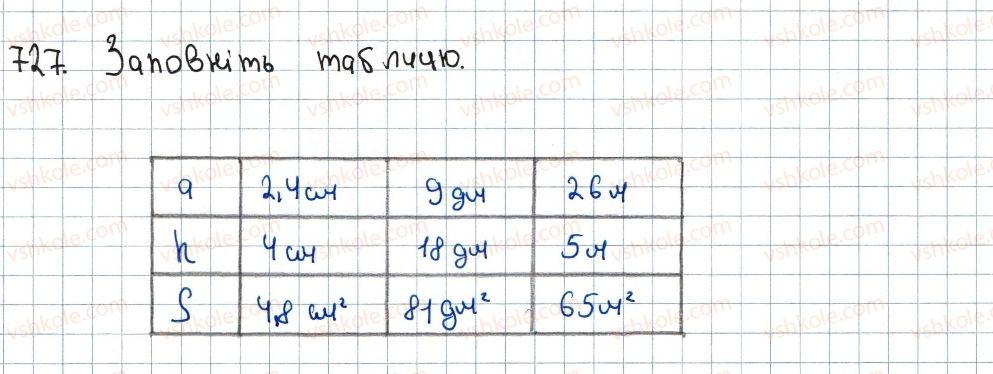 727. Заповніть таблицю.
a 2,4 см 9 дм 26 м
h 4 см 18 дм 5 м
S 4,8 см² 81 дм² 65 м²